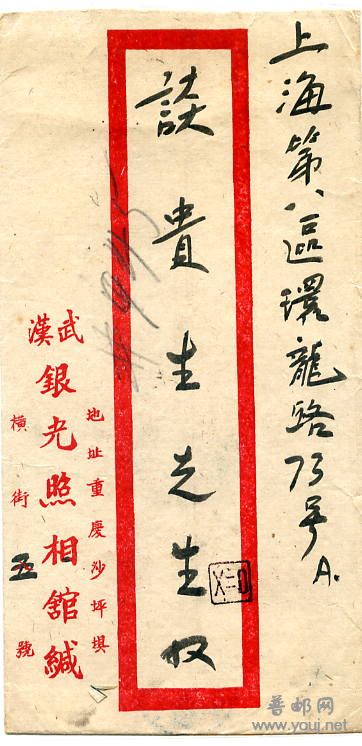 上海第八區環龍路73号A.
談貴生先生收
地址重慶沙坪埧
武漢
銀光照相舘緘
橫街五號
普邮网
www.youj.net